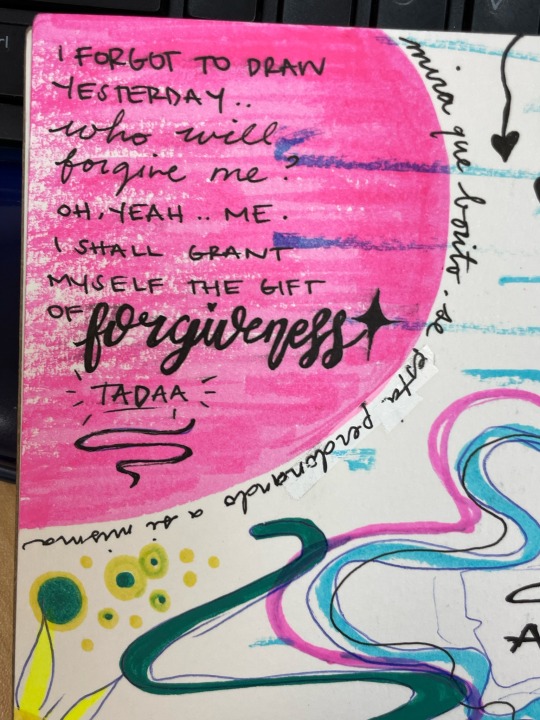 I FORGOT TO DRAW
YESTERDAY..
who will
forgive me?
OH, YEAH .. ME.
I SHALL GRANT
MYSELF THE GIFT
OF forgiveness
TADAA
mira que bonito. se esta perdonando a si misma
A